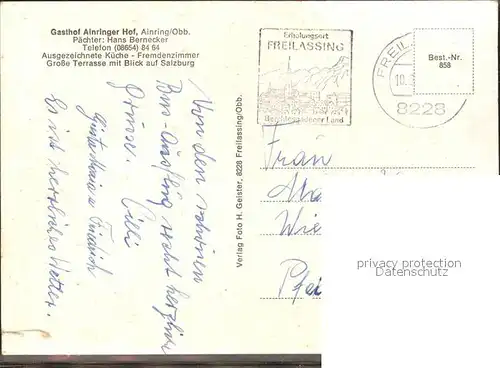 Gasthof Ainringer Hof, Ainring/Obb.
Pächter: Hans Bernecker
Telefon (08654) 84 64
Ausgezeichnete Küche - Fremdenzimmer
Große Terrasse mit Blick auf Salzburg
Erholungsort
FREILASSING
Berchtesgadener Land
FREIL
10.
8228
Best.-Nr.
858
Von den schönen
Bus-Ausflug recht herzliche
Grüsse.
Cilli
Friedrich
Es ist herrliches Wetter.
Verlag Foto H. Geister, 8228 Freilassing/Obb.
Frau
Ma
Wie
Pfei
privacy protection
Datenschutz